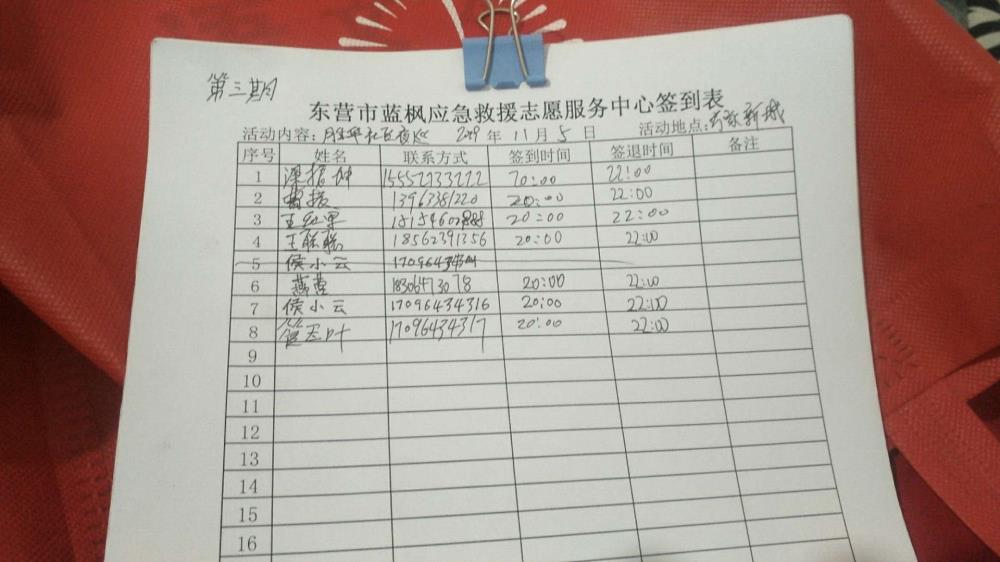 第三期
东营市蓝枫应急救援志愿服务中心签到表
活动内容: 社区夜巡 2019 年 11 月 5 日 活动地点: 新城
序号 姓名 联系方式 签到时间 签退时间 备注
1 梁振坤 15552733222 20:00 22:00
2 13963381220 20:00 22:00
3 王红军 15154602888 20:00 22:00
4 王联联 18562391356 20:00 22:00
5 侯小云
6 燕莲 18306473078 20:00 22:00
7 侯小云 17096434316 20:00 22:00
8 17096434317 20:00 22:00
9
10
11
12
13
14
15
16